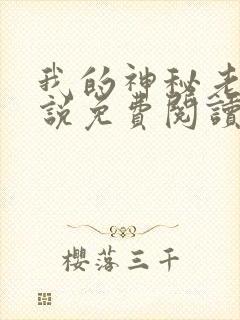 我的神秘老
說免費閱讀
櫻落三千